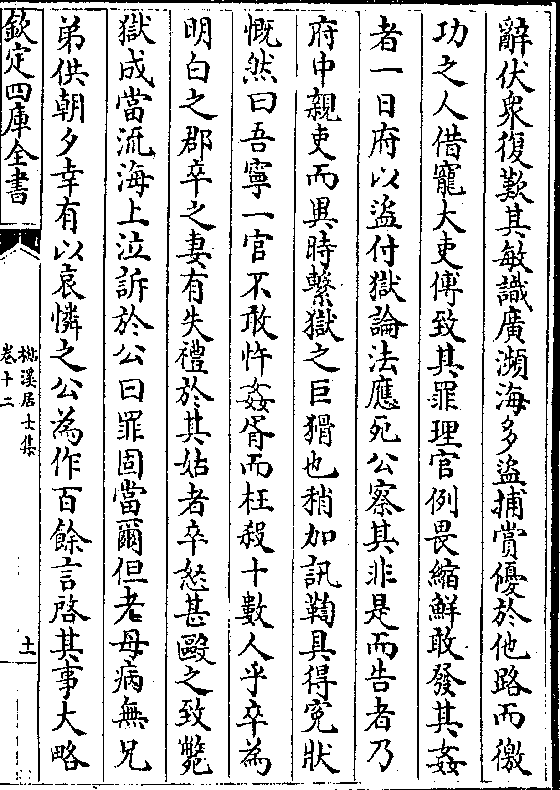 辭伏衆復歎其敏識廣瀕海多盜捕賞優於他路而徼
功之人借寵大吏傅致其罪理官例畏縮鮮敢發其姦
者一日府以盜付獄論法應死公察其非是而告者乃
府中親吏而異時繫獄之巨猾也稍加訊鞫具得寃狀
慨然曰吾寧一官不敢忤姦胥而枉殺十數人乎卒為
明白之郡卒之妻有失禮於其姑者卒怒甚毆之致斃
獄成當流海上泣訴於公曰罪固當爾但老母病無兄
弟供朝夕幸有以哀憐之公為作百餘言啓其事大略
欽定四庫全書
梅溪居士集
卷十二
十一